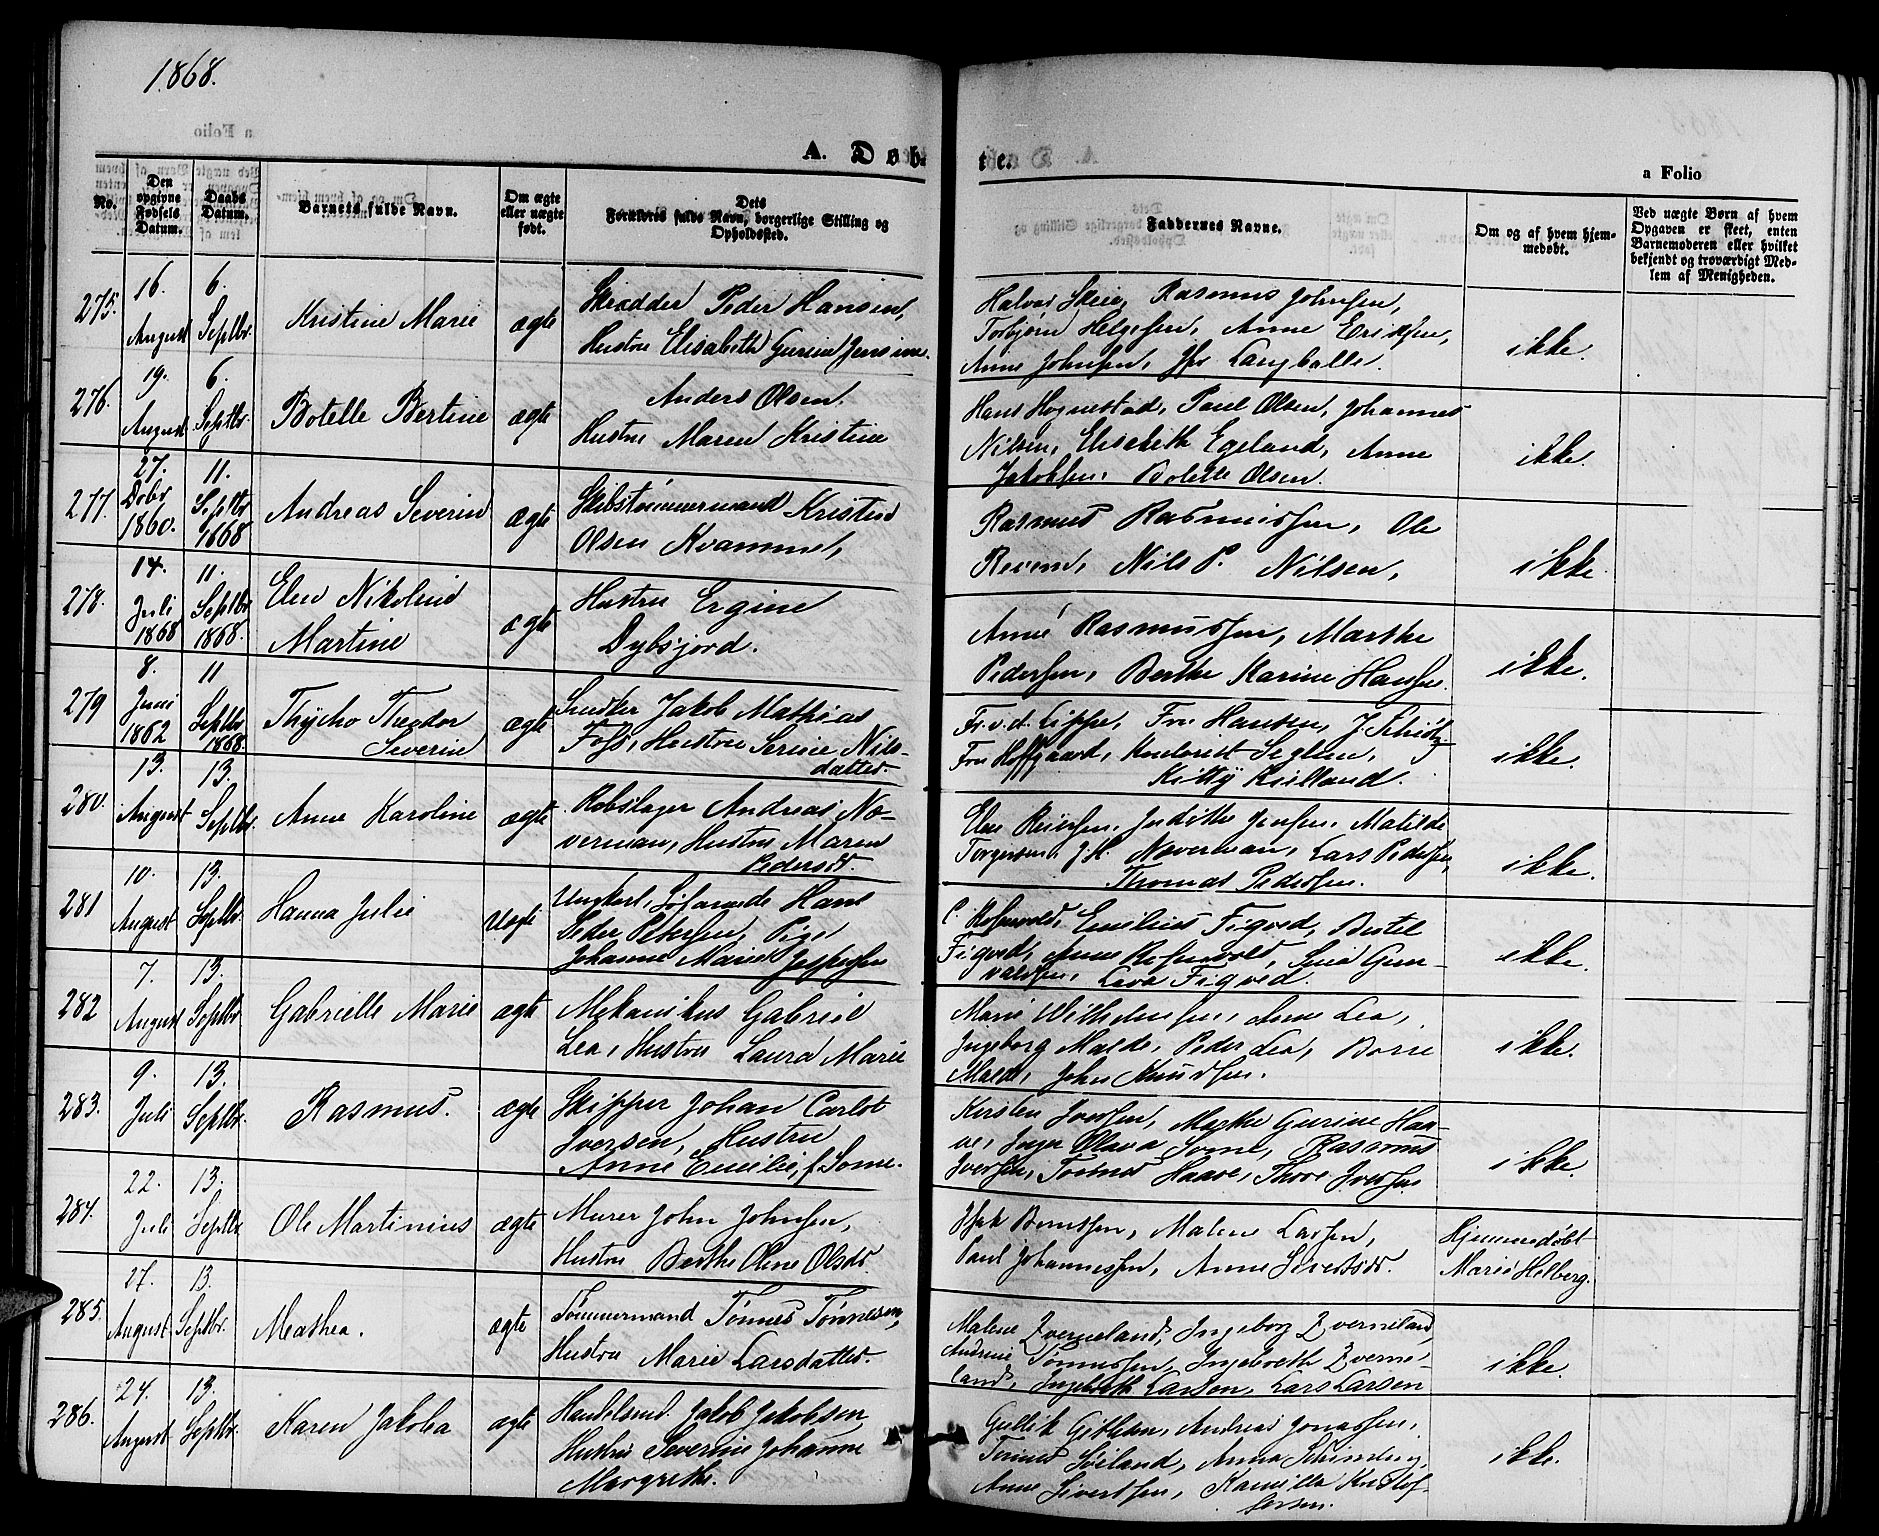 1868.
A. Døb-
te.
a Folio
No.
Den opgivne Fødsels Datum.
Daabs Datum.
Barnets fulde Navn.
Om ægte eller uægte født.
Forældres fulde Navn, borgerlige Stilling og Opholdssted.
Faddernes Navne.
Om og af hvem hjem-
medøbt.
Ved uægte Børn af hvem
Opgaven er skeet, enten
Barnemoderen eller hvilket
bekjendt og troværdigt Med-
lem af Menigheden.
275. 16. August 6. Septbr. Kristine Marie ægte
Skrædder Peder Hansen,
Hustru Elisabeth Gurine Jensine.
Halvor Skeie, Rasmus Johnsen,
Torbjørn Helgesen, Anne Eriksen,
Anne Johnsen, Jfr Langballe.
ikke.
276. 19. August 6. Septbr. Botelle Bertine ægte
Anders Olsen.
Hustru Maren Kristine
Hans Hognestad, Paul Olsen, Johannes
Nilsen, Elisabeth Egeland, Anne
Jakobsen, Bolette Olsen.
ikke.
277. 27. Dcbr 1860. 11. Septbr 1868 Andreas Severin ægte
Skibstømmermand Kristen
Olsen Kvamme,
Rasmus Rasmussen, Ole
Revem, Nils P. Nilsen,
ikke.
278. 14. Juli 1868 11. Septbr 1868. Elen Nikoline
Martine ægte
Hustru Ergine
Dybsjord.
Anne Rasmussen, Marthe
Pedersen, Berthe Karine Hansen.
ikke.
279 8. Juni 1862 11 Septbr 1868. Thycho Theodor
Severin ægte
Snedker Jakob Mathias
Foss, Hustru Serine Nils-
datter.
Fr. v. d. Lippe, Fru Hansen, J. Schiøtz
Fru Hoffgaard, Kontorist Seglem,
Kitty Kielland.
ikke.
280. 13. August 13. Septbr. Anne Karoline ægte
Rebslager Andreas No-
verman, Hustru Maren
Pedersdt.
Elen Reiersen, Judithe Jensen, Matilde
Torgersen, J. H. Noverman, Lars Pedersen,
Thomas Pedersen.
ikke.
281 10. August 13. Septbr. Hanna Julie Uægte
Ungkarl, Søfarende Hans
Peder Petersen, Pige
Johanne Marie Jespersen
C. Rosenvold, Emilius Figved, Bertel
Figved, Anne Rosenvold, Sina Gun-
valdsen, Lava Figved.
ikke.
282 7. August 13. Septbr Gabrielle Marie ægte
Mekanikus Gabriel
Lea, Hustru Laura Marie
Marie Wilhelmsen, Anne Lea,
Ingeborg Malde, Peder Lea, Borre
Malde, John Knudsen.
ikke.
283. 9. Juli 13. Septbr. Rasmus. ægte
Skipper Johan Carlot
Iversen, Hustru
Anne Emilie, f. Some.
Kirsten Iversen, Marthe Gurine Haa-
ve, Inger Olava Some, Rasmus
Iversen, Tønnes Haave, Thore Iversen
ikke.
284. 22. Juli 13. Septbr Ole Martinius ægte
Murer John Johnsen,
Hustru Berthe Oline Olsdt.
Isak Berntsen, Malene Larsen,
Paul Johannessen, Anne Sivertsdt.
Hjemmedøbt
Marie Helberg.
285. 27. August 13. Septbr. Mathea. ægte
Tømmermand Tønnes Tønnesen,
Hustru Marie Larsdatter.
Malene Zverneland, Ingeborg Zverneland,
Andreas Tønnessen, Ingebreth Zverne-
land, Ingebreth Larsen, Lars Larsen
ikke.
286. 24. August 13. Septbr. Karen Jakoba ægte
Handelsmd. Jakob Jakobsen
Hustru Severine Johanne
Margrethe.
Gullik Gitlesen, Andreas Jonassen,
Tønnes Soiland, Anna
Anne Sivertsen, Kamilla Kristof-
fersen.
ikke.